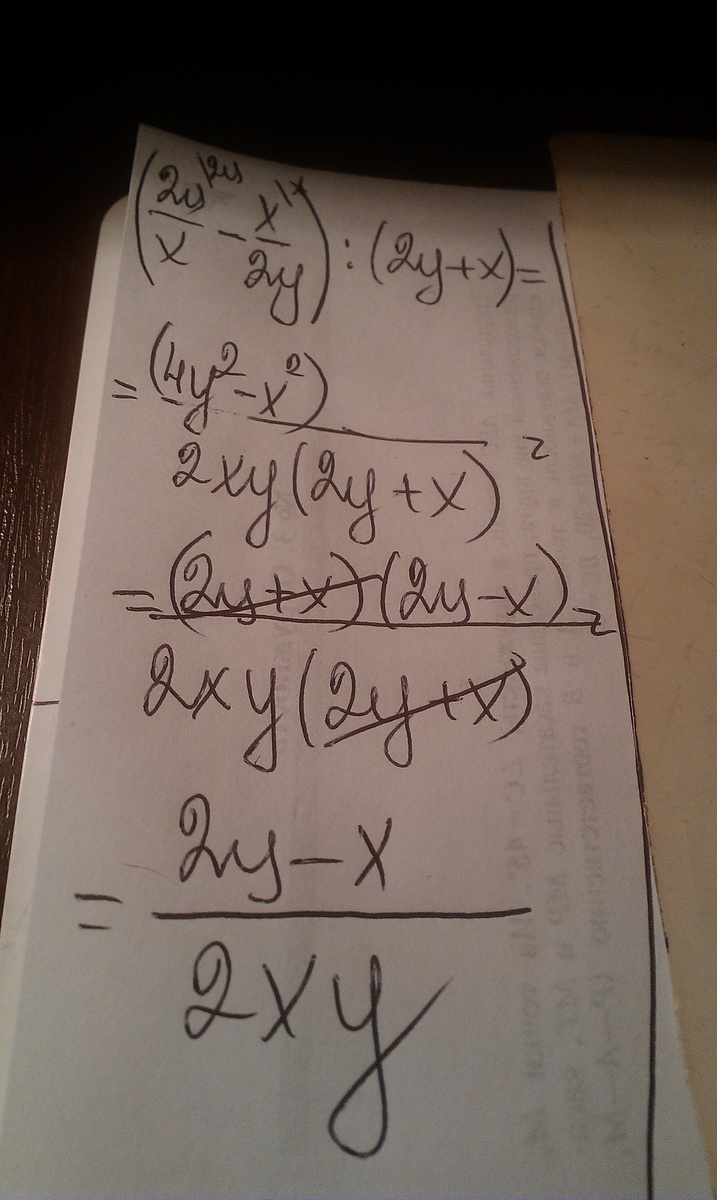 (2y/x \2y - x/2y \x) : (2y+x) =
= (4y² - x²) / 2xy(2y+x) =
= (2y+x)(2y-x) / 2xy(2y+x) =
= 2y-x / 2xy